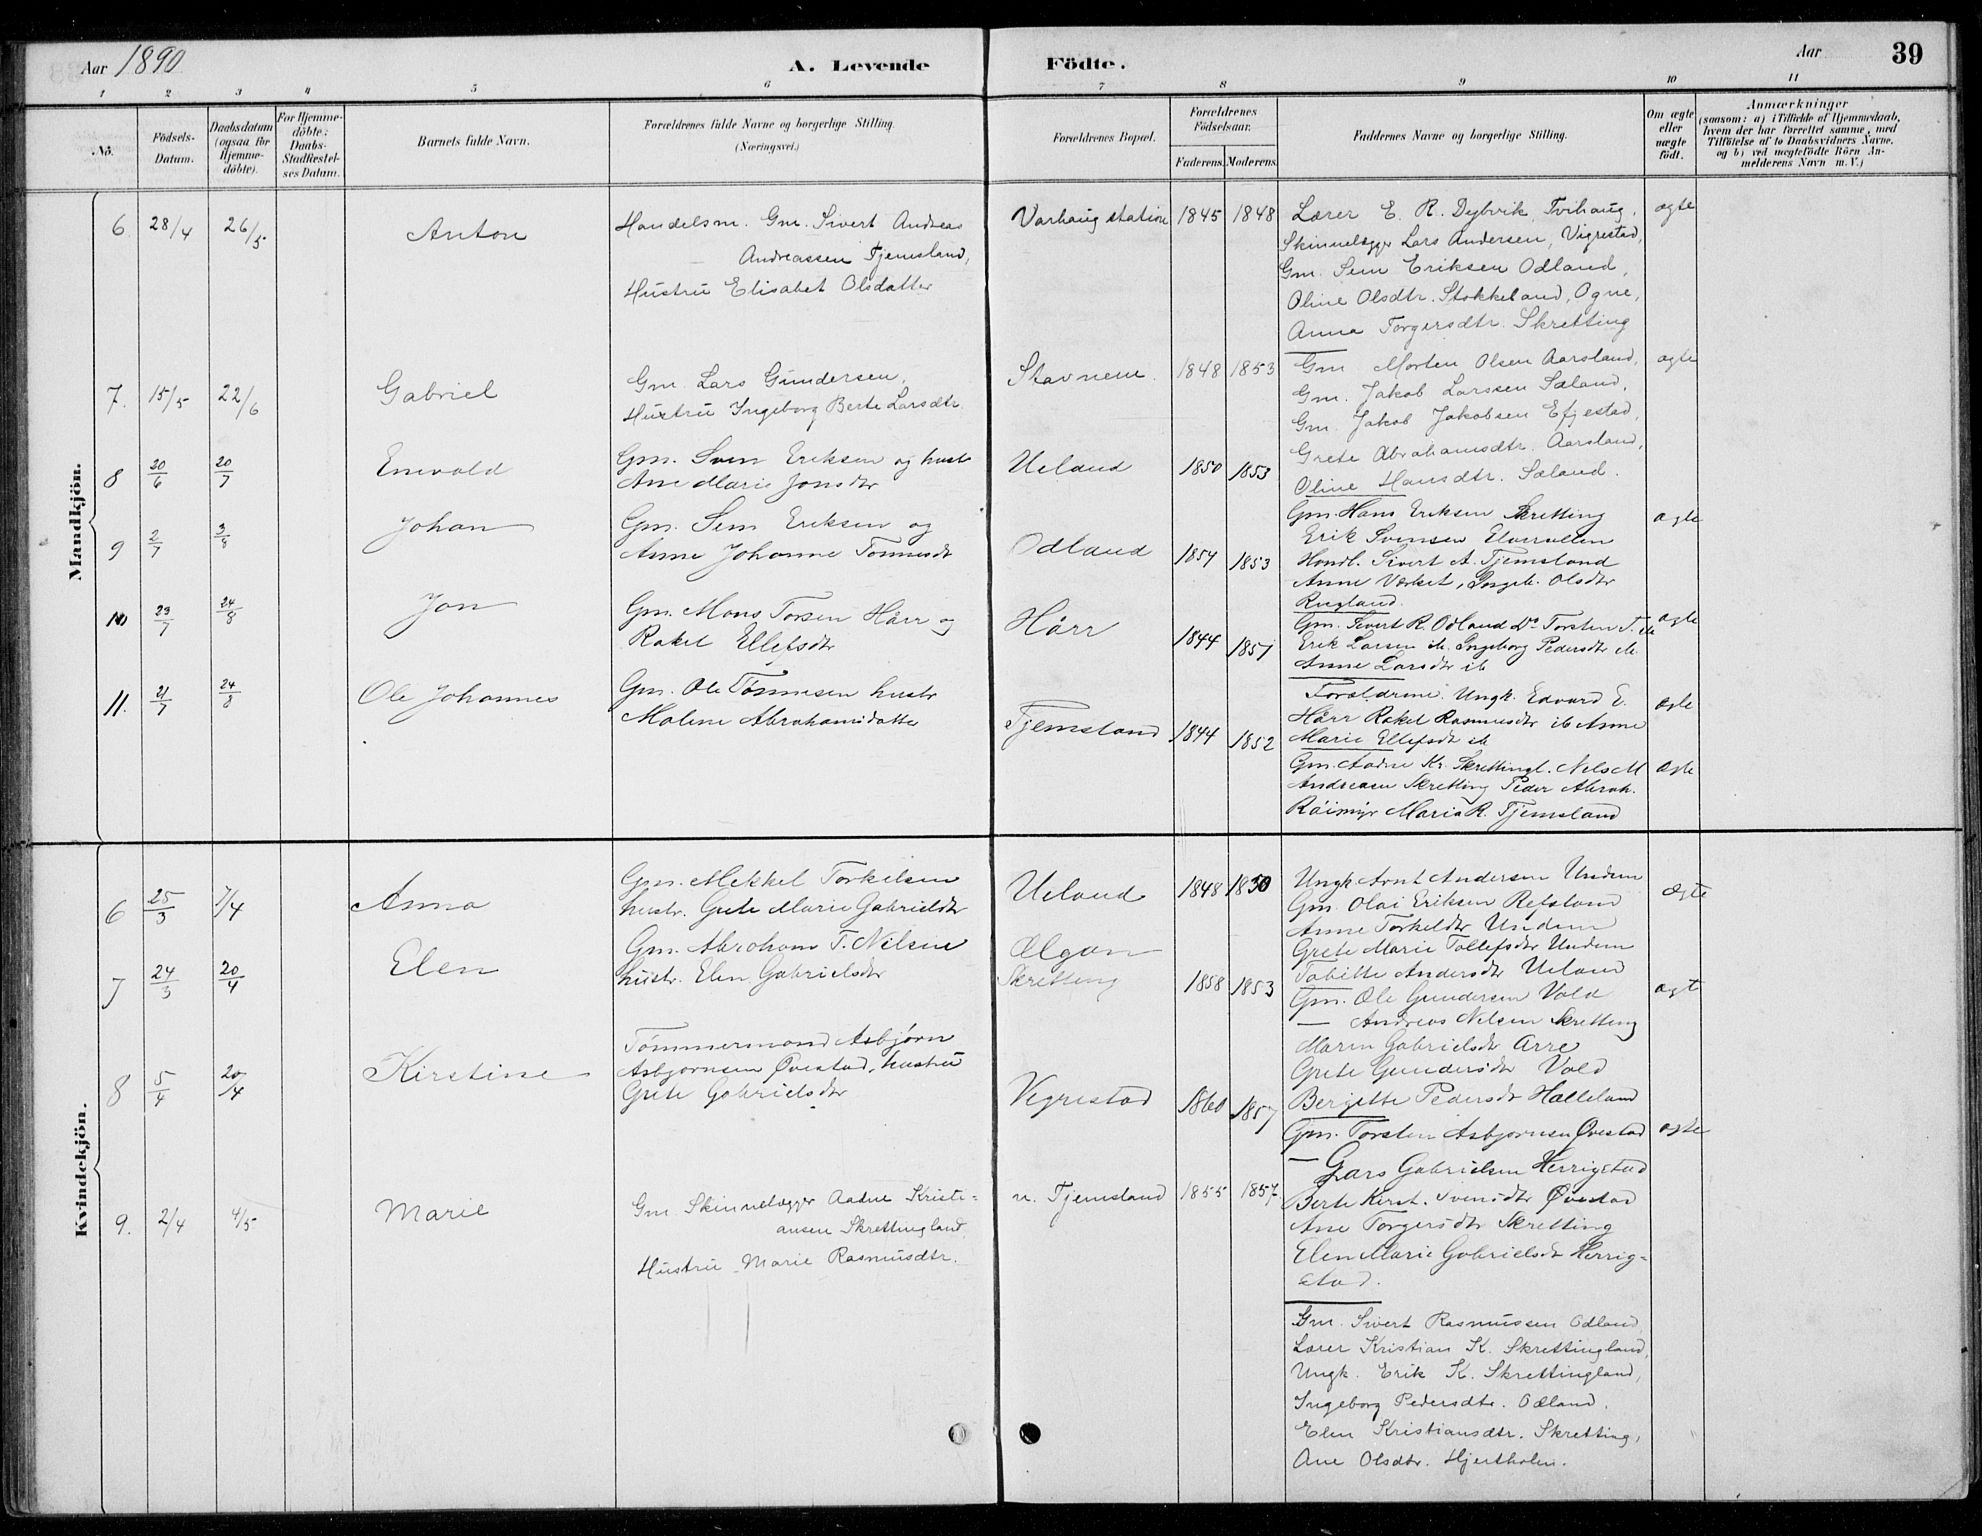 Aar 1890
A. Levende
Födte.
Aar
39
1 2 3 4 5 6 7 8 9 10 11
No.
Födsels-Datum.
Daabsdatum (ogsaa for Hjemme-döbte).
For Hjemme-döbte: Daabs-Stadfæstel-ses Datum.
Barnets fulde Navn.
Forældrenes fulde Navne og borgerlige Stilling.
(Næringsvei.)
Forældrenes Bopæl.
Forældrenes Födselsaar.
Faderens.
Moderens.
Faddernes Navne og borgerlige Stilling.
Om ægte eller uægte født.
Anmærkninger
(saasom: a) i Tilfælde af Hjemmedaab,
hvem der har forrettet samme, med
Tilføielse af to Daabsvidners Navne,
og b) ved uægtefödte Börn An-
melderens Navn m. V.)
Mandkjön.
6. 28/4 26/5
Anton
Handelsm. Gm. Sivert Andreas
Andreassen Tjemsland,
Hustru Elisabet Olsdatter
Varhaug station
1845 1848
Lærer E. R. Dybvik, Tvihaug,
Skinnelægger Lars Andersen, Vigrestad,
Gm. Sem Eriksen Odland,
Oline Olsdtr. Stokkeland, Ogne,
Anna Torgersdtr. Skretting
ægte
7. 15/5 22/6
Gabriel
Gm. Lars Gundersen,
Hustru Ingeborg Berte Larsdtr.
Stavnem
1848 1853
Gm Morten Olsen Aarsland,
Gm. Jakob Larssen Sæland,
Gm. Jakob Jakobsen Efjestad,
Grete Abrahamsdtr. Aarsland,
Oline Hansdtr. Sæland.
ægte
8 20/6 20/7
Enevald
Gm. Sven Eriksen og hustr
Ane Marie Jonsdtr
Ueland
1850 1853
Gm. Hans Eriksen Skretting
Erik Svensen
Handl. Sivert A. Tjemsland
Anne Varket, Ingeb. Olsdtr
ægte
9 2/7 3/8
Johan
Gm. Sem Eriksen og
Anne Johanne Tønnesdt
Odland
1854 1853
Gm. Sivert R. Odland Do Torsten T. ib
Erik Larsen ib. Ingeborg Pedersdtr ib.
Anne Larsdtr ib
ægte
10 23/7 24/8
Jon
Gm. Mons Torsen Hårr og
Rakel Ellefsdtr
Hårr
1844 1851
Forældrene. Ungk. Edvard E.
Hårr Rakel Rasmusdtr ib Anne
Marie Ellefsdt ib
ægte
11. 21/7 24/8
Ole Johannes
Gm. Ole Tønnesen hustr
Malene Abrahamsdatter
Tjemsland
1844 1852
Gm. Aadne Kr. Skrettingl. Nels M
Andreasen Skretting Peder Abrah.
Röimyr Maria R. Tjemsland
ægte
Kvindekjön.
6 25/3 7/4
Anna
Gm. Mekkel Torkilsen
hustr. Grete Marie Gabrielsdtr
Ueland
1848 1850
Ungk. Arnt Andersen Undem
Gm. Olai Eriksen Refsland
Anne Torkeldtr Undem
Grete Marie Tollefsdtr Undem
Tabitte Andersdtr Ueland
ægte
7 24/3 20/4
Elen
Gm. Abraham T. Nilsen
hustr. Elen Gabrielsdtr
Ølgan
Skretting
1858 1853
Gm. Ole Gundersen Vold
— Andreas Nilsen Skretting
Maren Gabrielsdtr Arre
Grete Gundersdtr Vold
Bergette Pedersdt Hælleland
ægt
8 5/4 20/4
Kirstine
Tømmermand Asbjørn
Asbjørnsen Øvestad, hustru
Grete Gabrielsdtr
Vegrestad
1860 1857
Gm. Torsten Asbjørnsen Øvestad
— Lars Gabrielsen Herrigstad
Berte Kirst. Svensdtr Øvestad
Ane Torgersdtr Skretting
Elen Marie Gabrielsdt Herrig-
stad.
ægte
9. 2/4 4/5
Marie
Gm. Skinnelægger Aadne Kristi-
ansen Skrettingland,
Hustru Marie Rasmusdtr.
n. Tjemsland
1855 1857
Gm. Sivert Rasmussen Odland,
Lærer Kristian K. Skrettingland,
Ungk. Erik K. Skrettingland,
Ingeborg Pedersdtr. Odland.
Elen Kristiansdtr. Skretting,
Ane Olsdtr. Hjertholm.